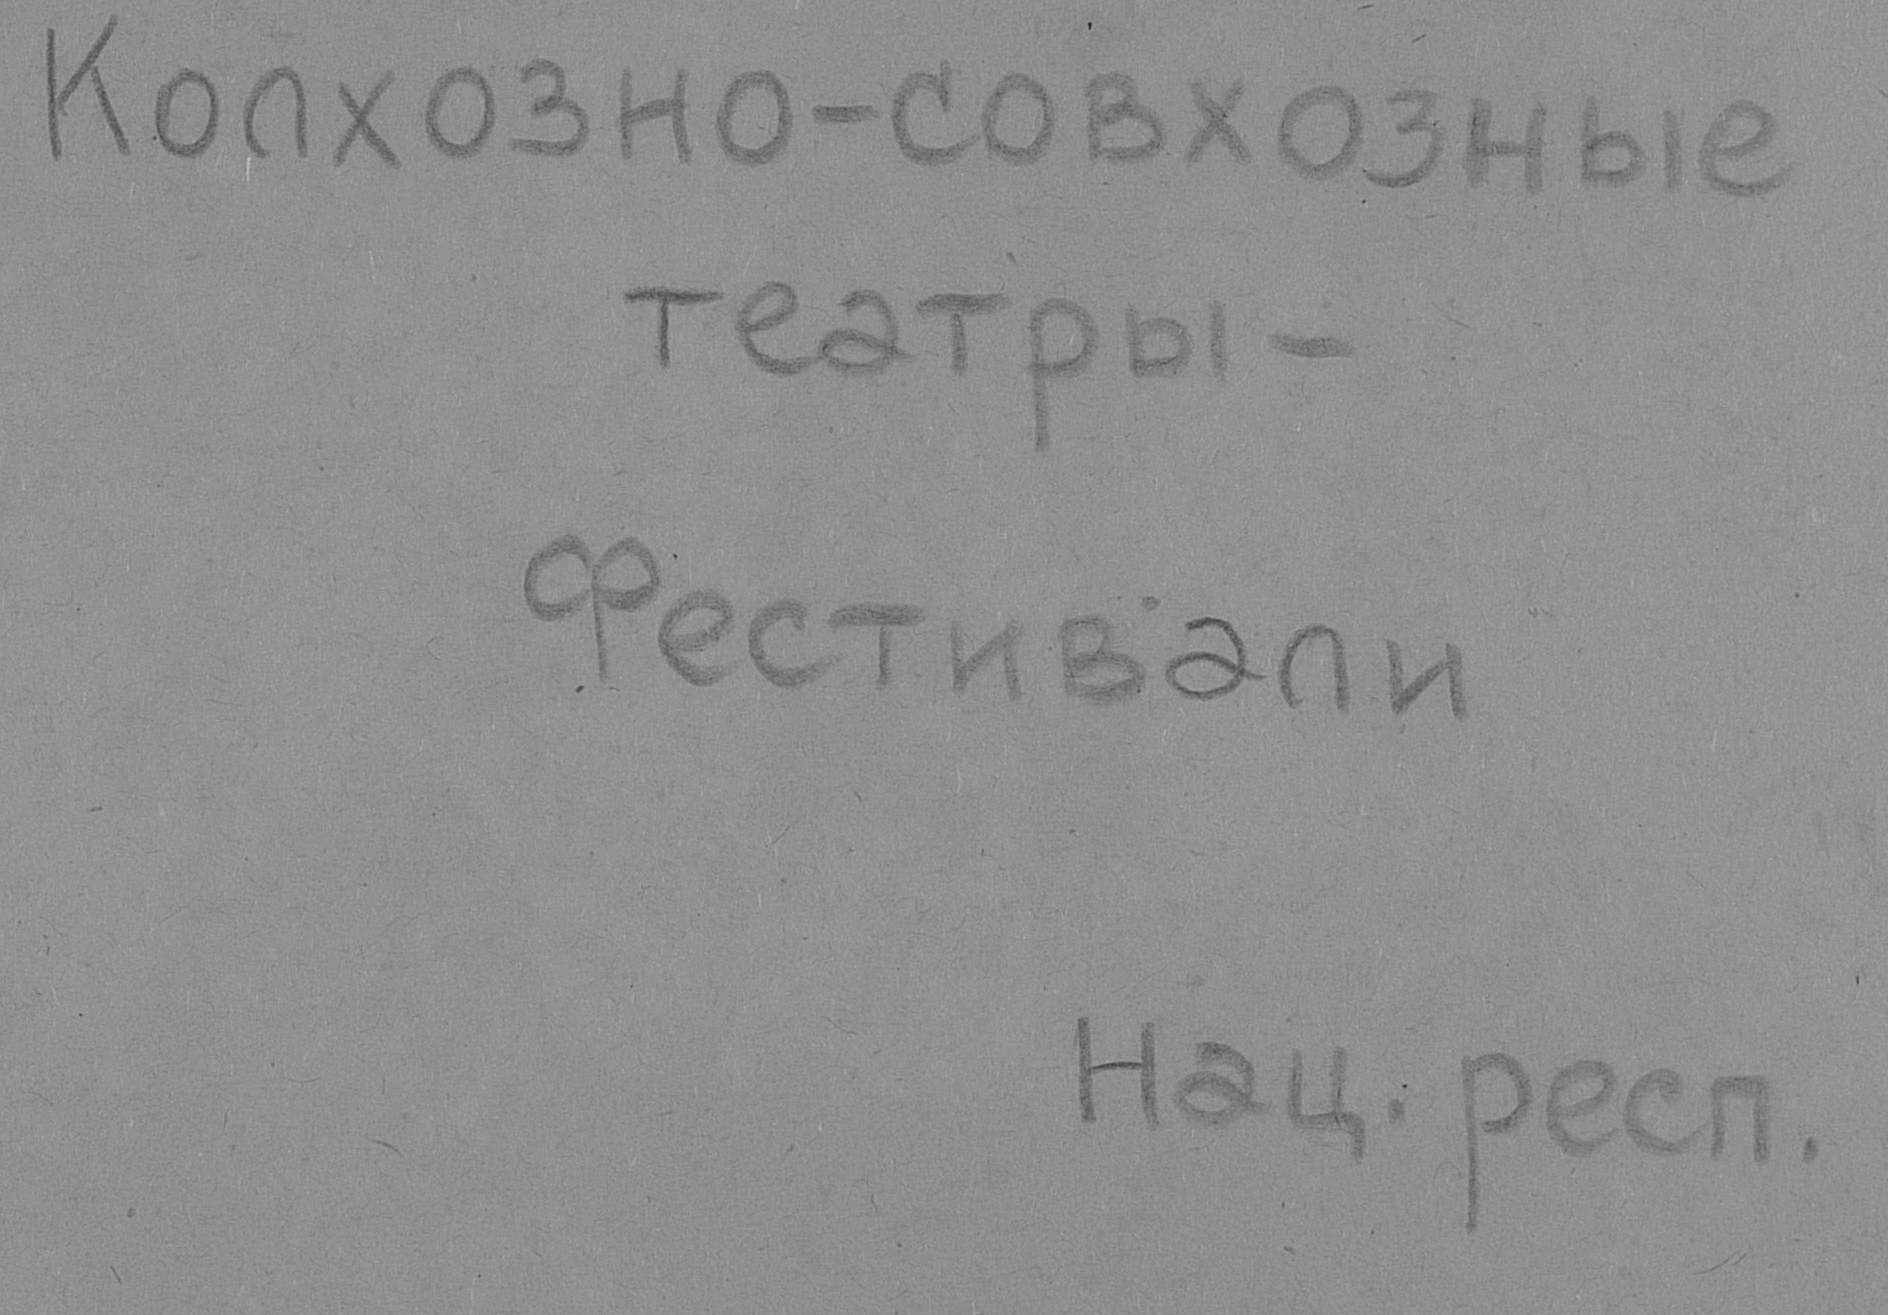 Колхозно-совхозные
театры-
Фестивали
Нац. респ.